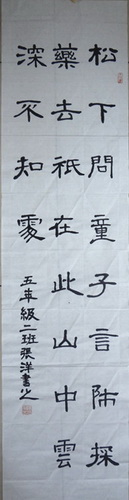 松下問童子言師採
藥去祇在此山中雲
深不知處
五年級二班張洋書之